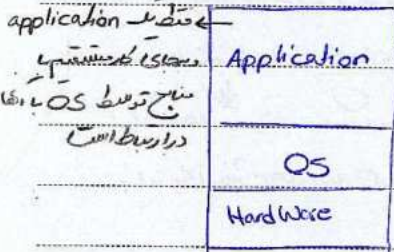 فقط یک application
وبجای کار مستقیم با
منابع توسط OS با آنها
در ارتباط است
Application
OS
Hardware